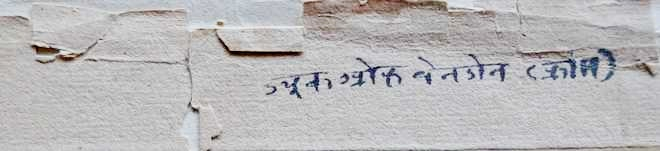 ड्यूक ऑफ वेनडोन (फ्रांस)